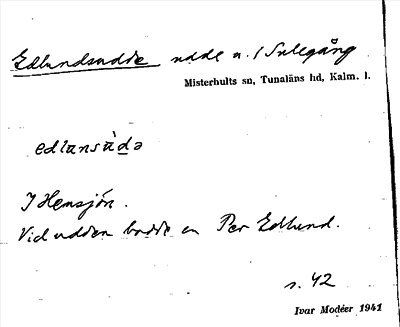 Edlundsudde udde u. / Sulegång
Misterhults sn, Tunaläns hd, Kalm. l.
edlansùdə
I Hemsjön.
Vid udden bodde en Per Edlund.
s. 42
Ivar Modéer 1941